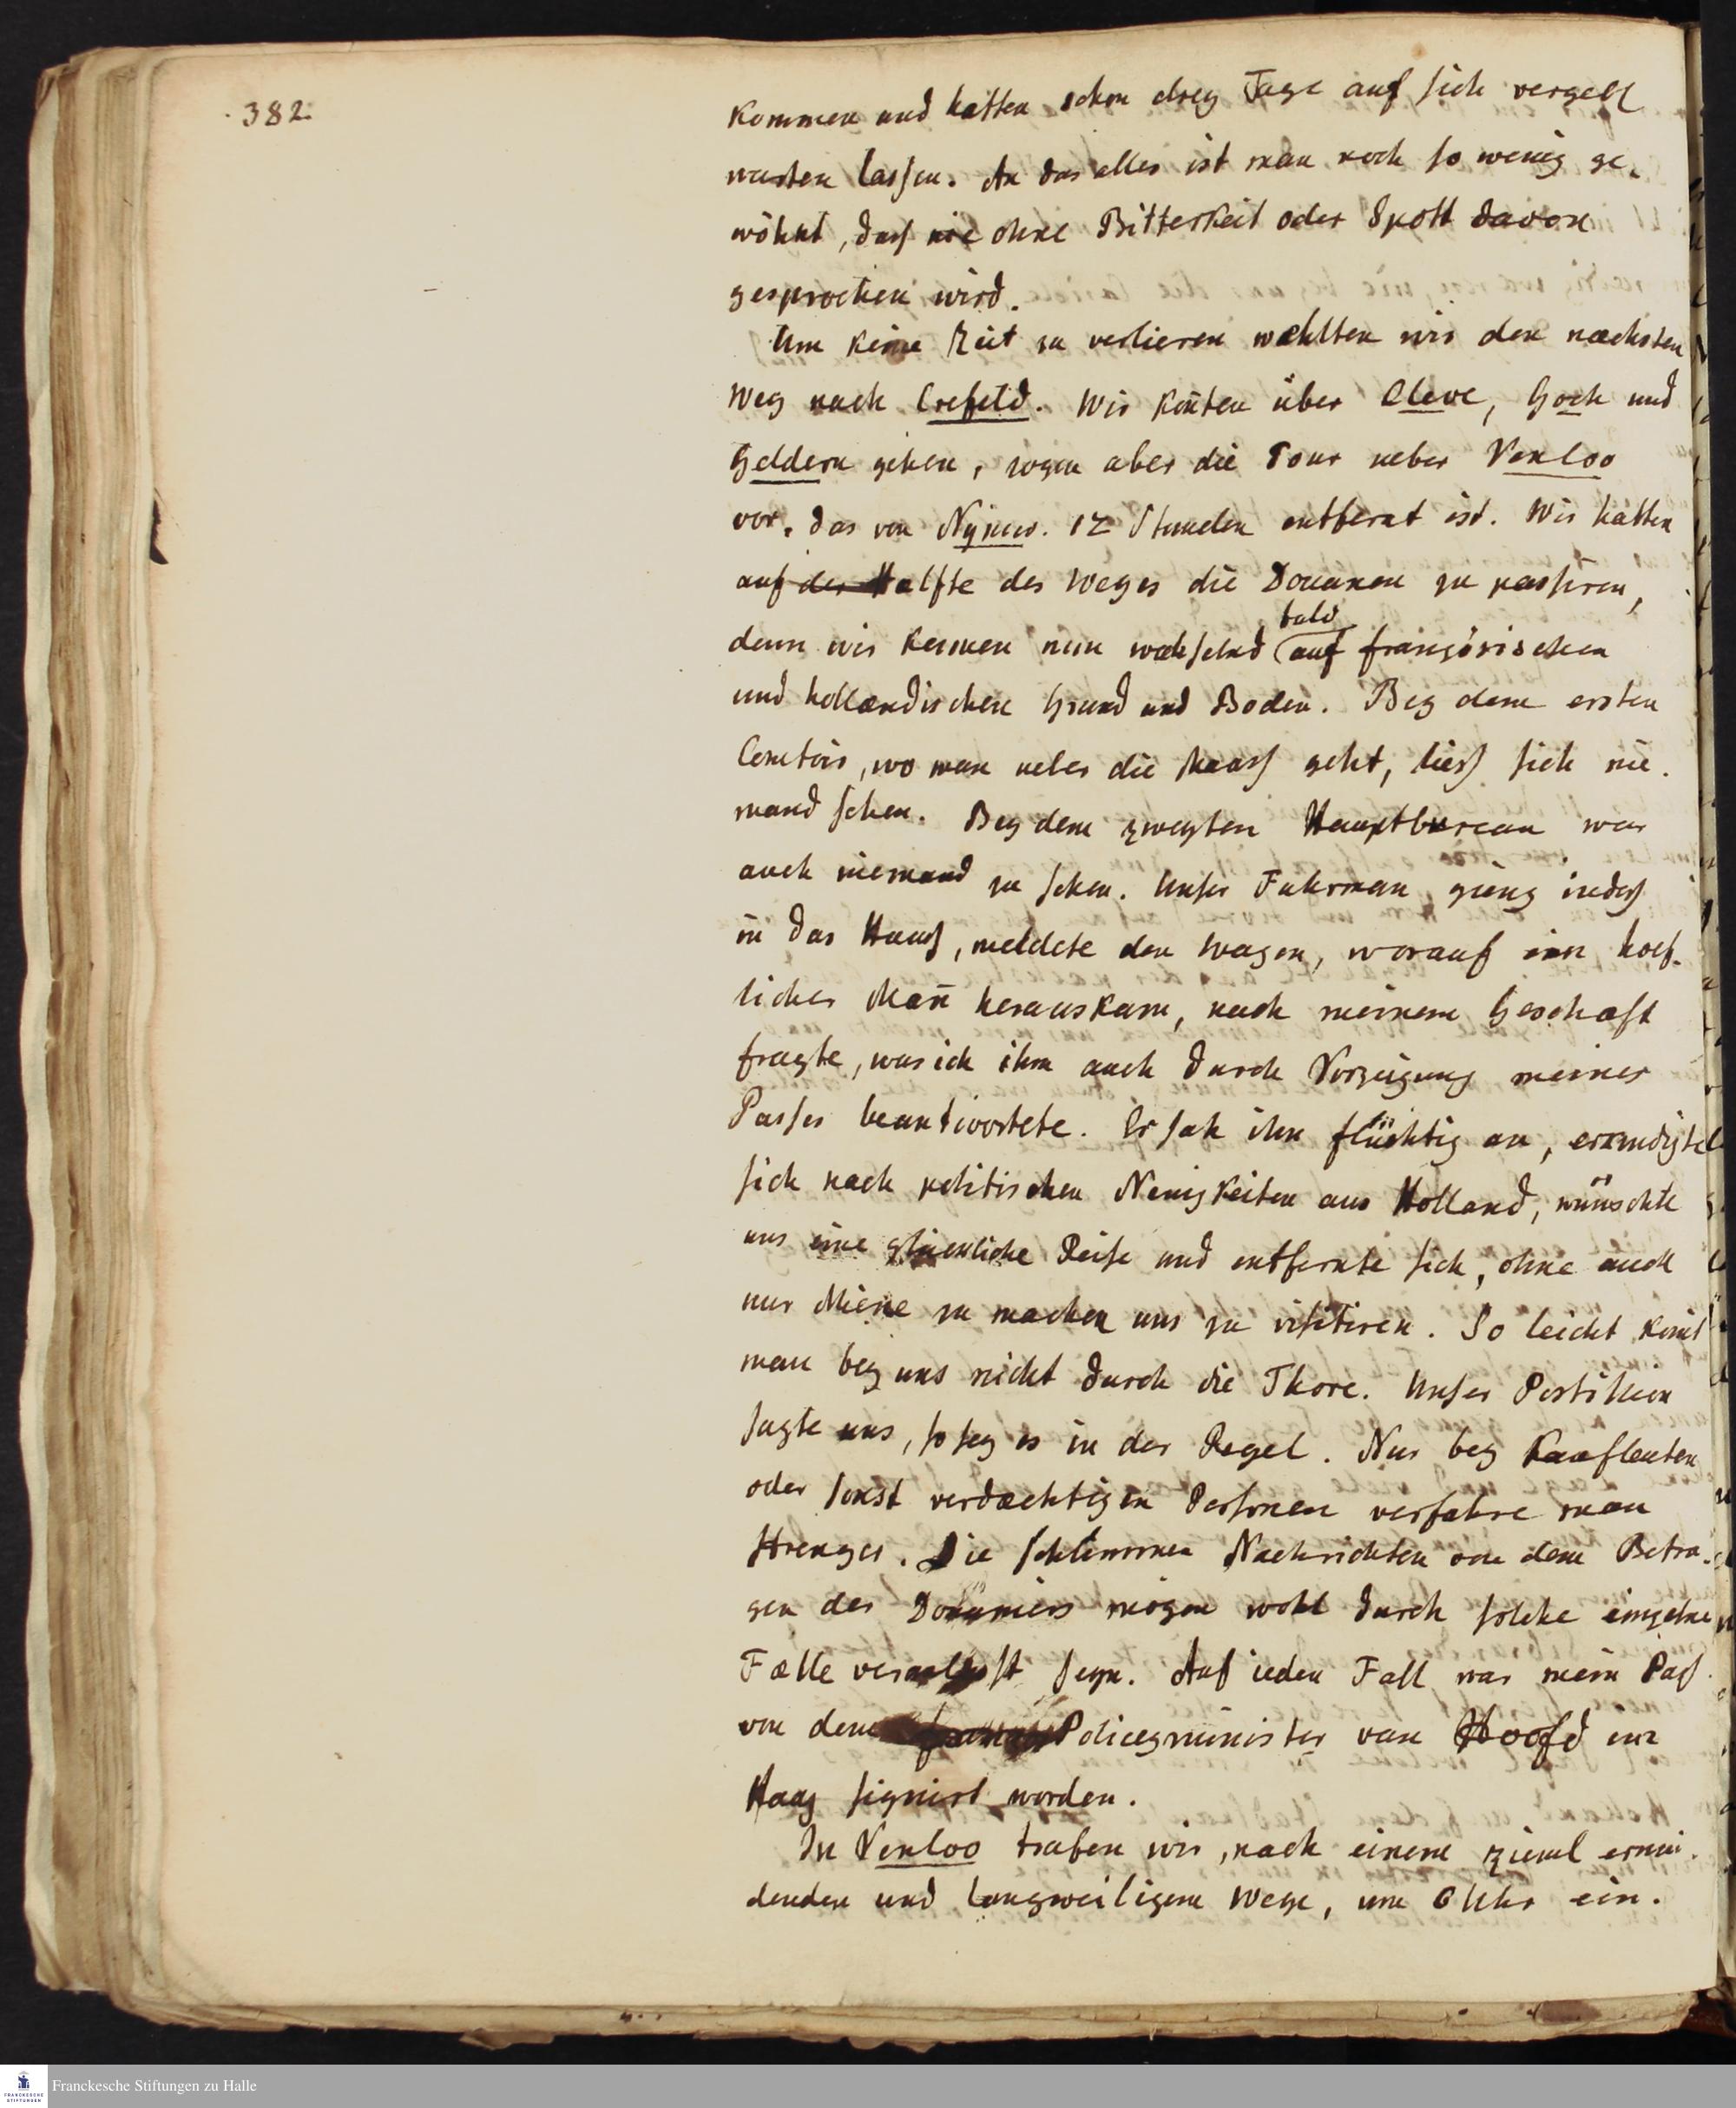 382.
kommen und hatten schon drey Tage auf sich vergebl
warten lassen. An das alles ist man noch so wenig ge-
wöhnt, dass nie ohne Bitterkeit oder Spott davon
gesprochen wird.
Um keine Zeit zu verlieren wæhlten wir den næchsten
Weg nach Crefeld. Wir kon̄ten über Cleve, Goch und
Geldern gehen, zogen aber die Tour ueber Venloo
vor, das von Nymw. 12 Stunden entfernt ist. Wir hatten
auf der Hælfte des Weges die Douanen zu passiren,
denn wir kamen nun wechselnd bald auf französischen
und hollændischen Grund und Boden. Bey dem ersten
Comtoir, wo man ueber die Maass geht, liess sich nie-
mand sehen. Bey dem zweyten Hauptbureau war
auch niemand zu sehen. Unser Fuhrman gieng indess
in das Haus, meldete den Wagen, worauf ein hoef-
licher Man̄ herauskam, nach meinem Geschæft
fragte, was ich ihm auch durch Vorzeigung meines
Passes beantwortete. Er sah ihn flüchtig an, erkundigte
sich nach politischen Neuigkeiten aus Holland, wünschte
uns eine glueckliche Reise und entfernte sich, ohne auch
nur Miene zu machen uns zu visitiren. So leicht kom̄t
man bey uns nicht durch die Thore. Unser Postillion
sagte uns, so sey es in der Regel. Nur bey Kaufleuten
oder sonst verdæchtigen Personen verfahre man
strenger. Die schlimmen Nachrichten von dem Betra-
gen der Douaniers mögen wohl durch solche einzelne
Fælle veranlasst seyn. Auf ieden Fall war mein Pass
von dem Policeyminister van Hoofd im
Haag signirt worden.
In Venloo trafen wir, nach einem zieml ermü-
denden und langweiligem Wege, um 6 Uhr ein.
Franckesche Stiftungen zu Halle
FRANCKESCHE
STIFTUNGEN